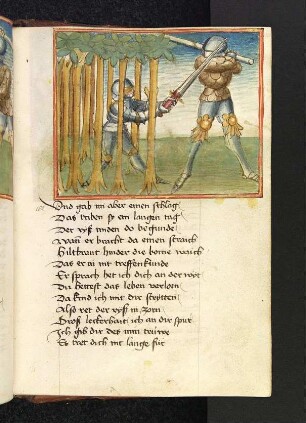 Vnd gab im aber einen schlag
Das triben sy ein langen tag
Der ryß inden do begunde
Wan er bracht da einen straich
Hiltbrant hinder die bome waich
Das er in nit treffen kunde
Er sprach het ich dich an der wyt
Du hettest das leben verlorn
Da kind ich mit dir stryten
Also ret der ryß in zorn
Groß leckerhait ich an dir spur
Ich gib dir des min trüwe
Es tret dich nit lange für